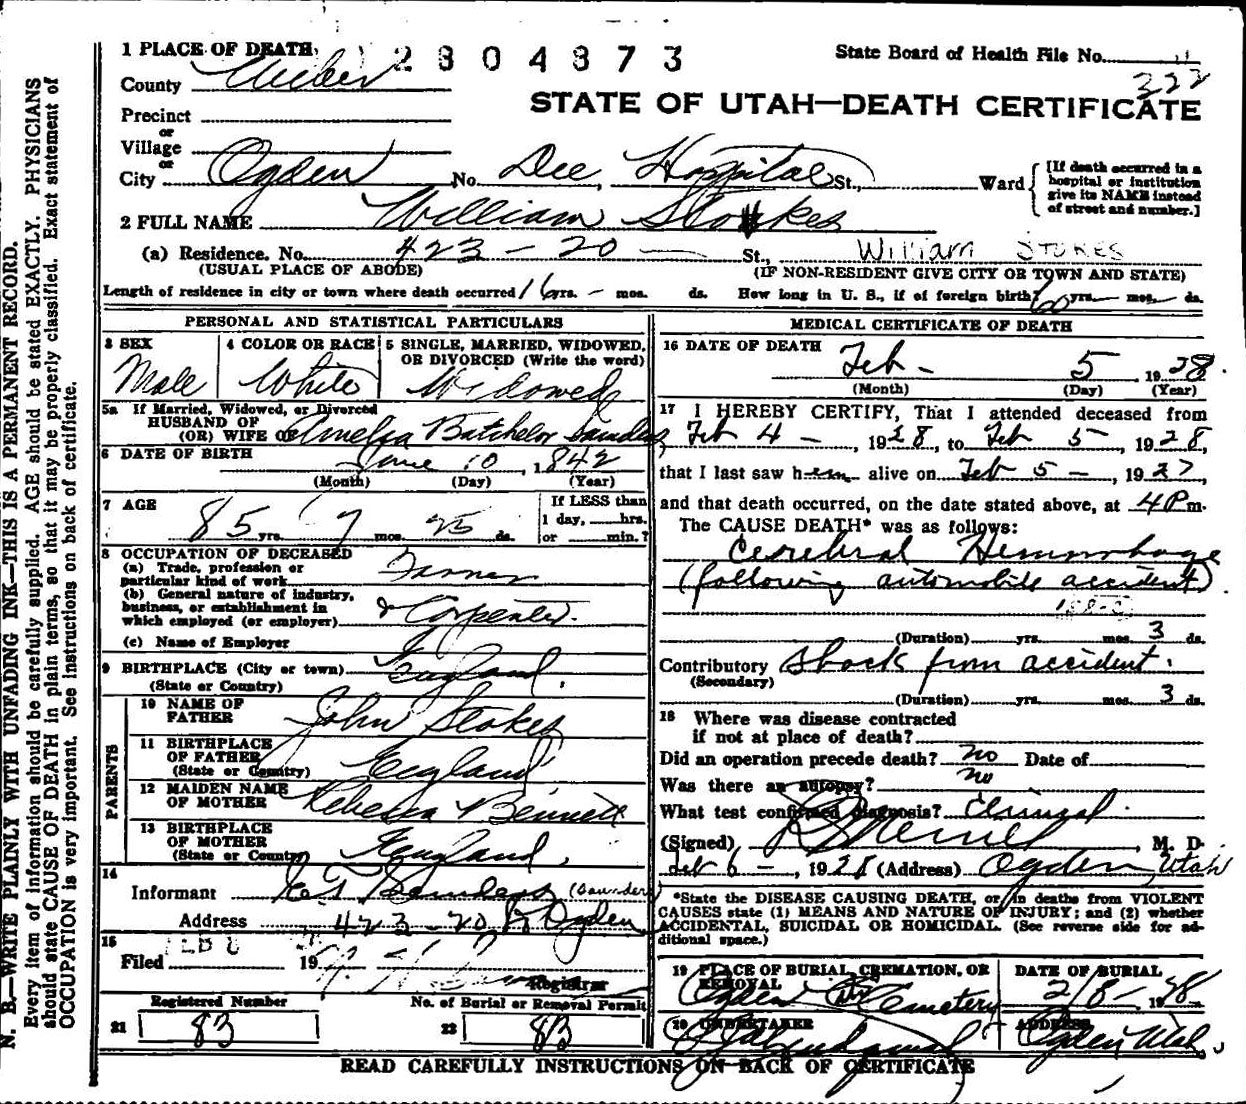 1 PLACE OF DEATH
2804873
State Board of Health File No. 11
222
County Weber
STATE OF UTAH—DEATH CERTIFICATE
Precinct
or
Village
or
City Ogden No. Dee Hospital St., Ward [If death occurred in a hospital or institution give its NAME instead of street and number.]
2 FULL NAME William Stokes
(a) Residence. No. 423 - 20 — St., William STOKES
(USUAL PLACE OF ABODE) (IF NON-RESIDENT GIVE CITY OR TOWN AND STATE)
Length of residence in city or town where death occurred 16 yrs. - mos. ds. How long in U. S., if of foreign birth? 60 yrs. — mos. — ds.
PERSONAL AND STATISTICAL PARTICULARS
3 SEX
Male
4 COLOR OR RACE
White
5 SINGLE, MARRIED, WIDOWED, OR DIVORCED (Write the word)
Widowed
5a If Married, Widowed, or Divorced
HUSBAND OF
(OR) WIFE OF Amelia Batchelor Sanders
6 DATE OF BIRTH June 10, 1842
(Month) (Day) (Year)
7 AGE
85 yrs. 7 mos. 25 ds.
If LESS than
1 day, hrs.
or min.?
8 OCCUPATION OF DECEASED
(a) Trade, profession or
particular kind of work Farmer
(b) General nature of industry,
business, or establishment in
which employed (or employer) & Carpenter.
(c) Name of Employer
9 BIRTHPLACE (City or town) England.
(State or Country)
PARENTS
10 NAME OF
FATHER John Stokes
11 BIRTHPLACE
OF FATHER
(State or Country) England
12 MAIDEN NAME
OF MOTHER Rebecca Bennett
13 BIRTHPLACE
OF MOTHER
(State or Country) England.
14
Informant Sanders (Saunders)
Address 423-20 Ogden
15 FEB 8
Filed 19
Registrar
Registered Number
21 83
No. of Burial or Removal Permit
22 83
MEDICAL CERTIFICATE OF DEATH
16 DATE OF DEATH
Feb - 5 1928
(Month) (Day) (Year)
17 I HEREBY CERTIFY, That I attended deceased from
Feb 4 -, 1928, to Feb 5 -, 1928,
that I last saw him alive on Feb 5 -, 1927,
and that death occurred, on the date stated above, at 4 P m.
The CAUSE DEATH* was as follows:
Cerebral Hemorrhage
(following automobile accident)
(Duration) yrs. mos. 3 ds.
Contributory Shock from accident.
(Secondary)
(Duration) yrs. mos. 3 ds.
18 Where was disease contracted
if not at place of death?
Did an operation precede death? no Date of
Was there an autopsy? no
What test confirmed diagnosis? Clinical
(Signed) M. D.
Feb 6 -, 1928 (Address) Ogden, Utah
*State the DISEASE CAUSING DEATH, or in deaths from VIOLENT
CAUSES state (1) MEANS AND NATURE OF INJURY; and (2) whether
ACCIDENTAL, SUICIDAL OR HOMICIDAL. (See reverse side for ad-
ditional space.)
19 PLACE OF BURIAL, CREMATION, OR
REMOVAL
Ogden City Cemetery
DATE OF BURIAL
2/8- 1928
20 UNDERTAKER
ADDRESS
Ogden Utah.
READ CAREFULLY INSTRUCTIONS ON BACK OF CERTIFICATE
N. B.—WRITE PLAINLY WITH UNFADING INK—THIS IS A PERMANENT RECORD.
Every item of information should be carefully supplied. AGE should be stated EXACTLY. PHYSICIANS
should state CAUSE OF DEATH in plain terms, so that it may be properly classified. Exact statement of
OCCUPATION is very important. See instructions on back of certificate.